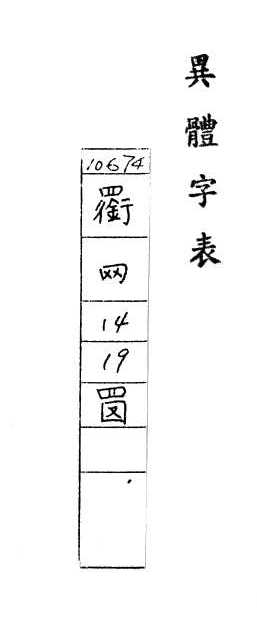 異體字表
10674
网
14
19